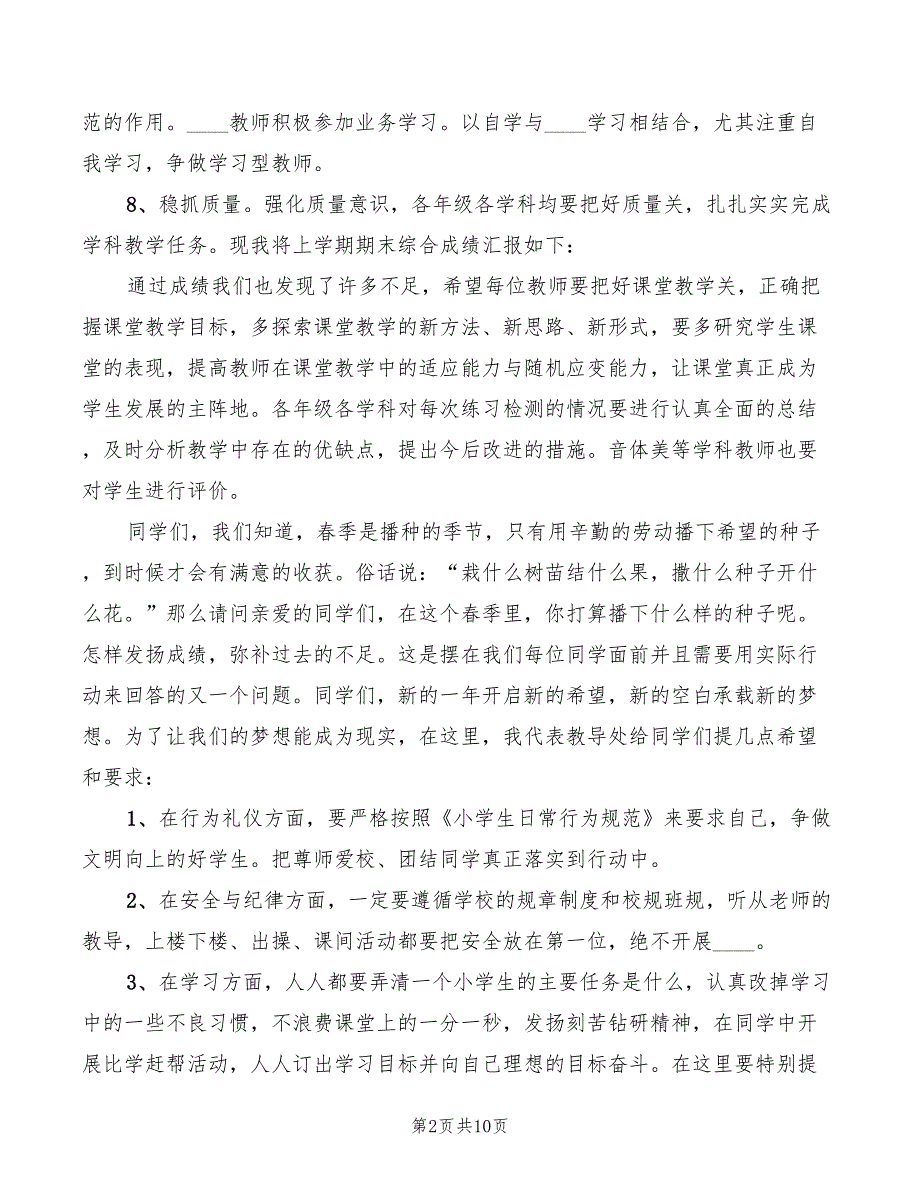 范的作用。____教师积极参加业务学习。以自学与____学习相结合，尤其注重自
我学习，争做学习型教师。
8、稳抓质量。强化质量意识，各年级各学科均要把好质量关，扎扎实实完成
学科教学任务。现我将上学期期末综合成绩汇报如下：
通过成绩我们也发现了许多不足，希望每位教师要把好课堂教学关，正确把
握课堂教学目标，多探索课堂教学的新方法、新思路、新形式，要多研究学生课
堂的表现，提高教师在课堂教学中的适应能力与随机应变能力，让课堂真正成为
学生发展的主阵地。各年级各学科对每次练习检测的情况要进行认真全面的总结
，及时分析教学中存在的优缺点，提出今后改进的措施。音体美等学科教师也要
对学生进行评价。
同学们，我们知道，春季是播种的季节，只有用辛勤的劳动播下希望的种子
，到时候才会有满意的收获。俗话说：“栽什么树苗结什么果，撒什么种子开什
么花。”那么请问亲爱的同学们，在这个春季里，你打算播下什么样的种子呢。
怎样发扬成绩，弥补过去的不足。这是摆在我们每位同学面前并且需要用实际行
动来回答的又一个问题。同学们，新的一年开启新的希望，新的空白承载新的梦
想。为了让我们的梦想能成为现实，在这里，我代表教导处给同学们提几点希望
和要求：
1、在行为礼仪方面，要严格按照《小学生日常行为规范》来要求自己，争做
文明向上的好学生。把尊师爱校、团结同学真正落实到行动中。
2、在安全与纪律方面，一定要遵循学校的规章制度和校规班规，听从老师的
教导，上楼下楼、出操、课间活动都要把安全放在第一位，绝不开展____。
3、在学习方面，人人都要弄清一个小学生的主要任务是什么，认真改掉学习
中的一些不良习惯，不浪费课堂上的一分一秒，发扬刻苦钻研精神，在同学中开
展比学赶帮活动，人人订出学习目标并向自己理想的目标奋斗。在这里要特别提
第2页共10页